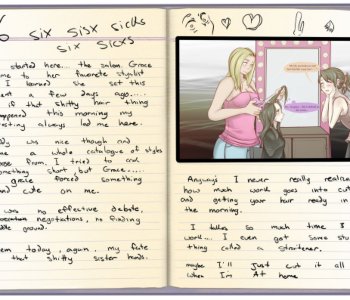 6 six sisx sicks
six sicxs
started here... the salon. Grace
me to her favorite stylist
I learned she set this
ent a few days ago...
if that shitty hair thing
happened this morning my
esting always led me here.
dy was nice though and
me a whole catalogue of styles
ose from. I tried to
something short, but Grace.....
grace forced something
and cute on me.
was no effective debate,
negotiations, no finding
ddle ground.
em today, again.. my fate
that shitty sister hands.
Anyways I never really realize
how much work goes into cut
and getting your hair ready in
the morning.
I takes so much time I
work... I even got some stu
thing called a straitener.
maybe I'll just cut it all
when I'm At home